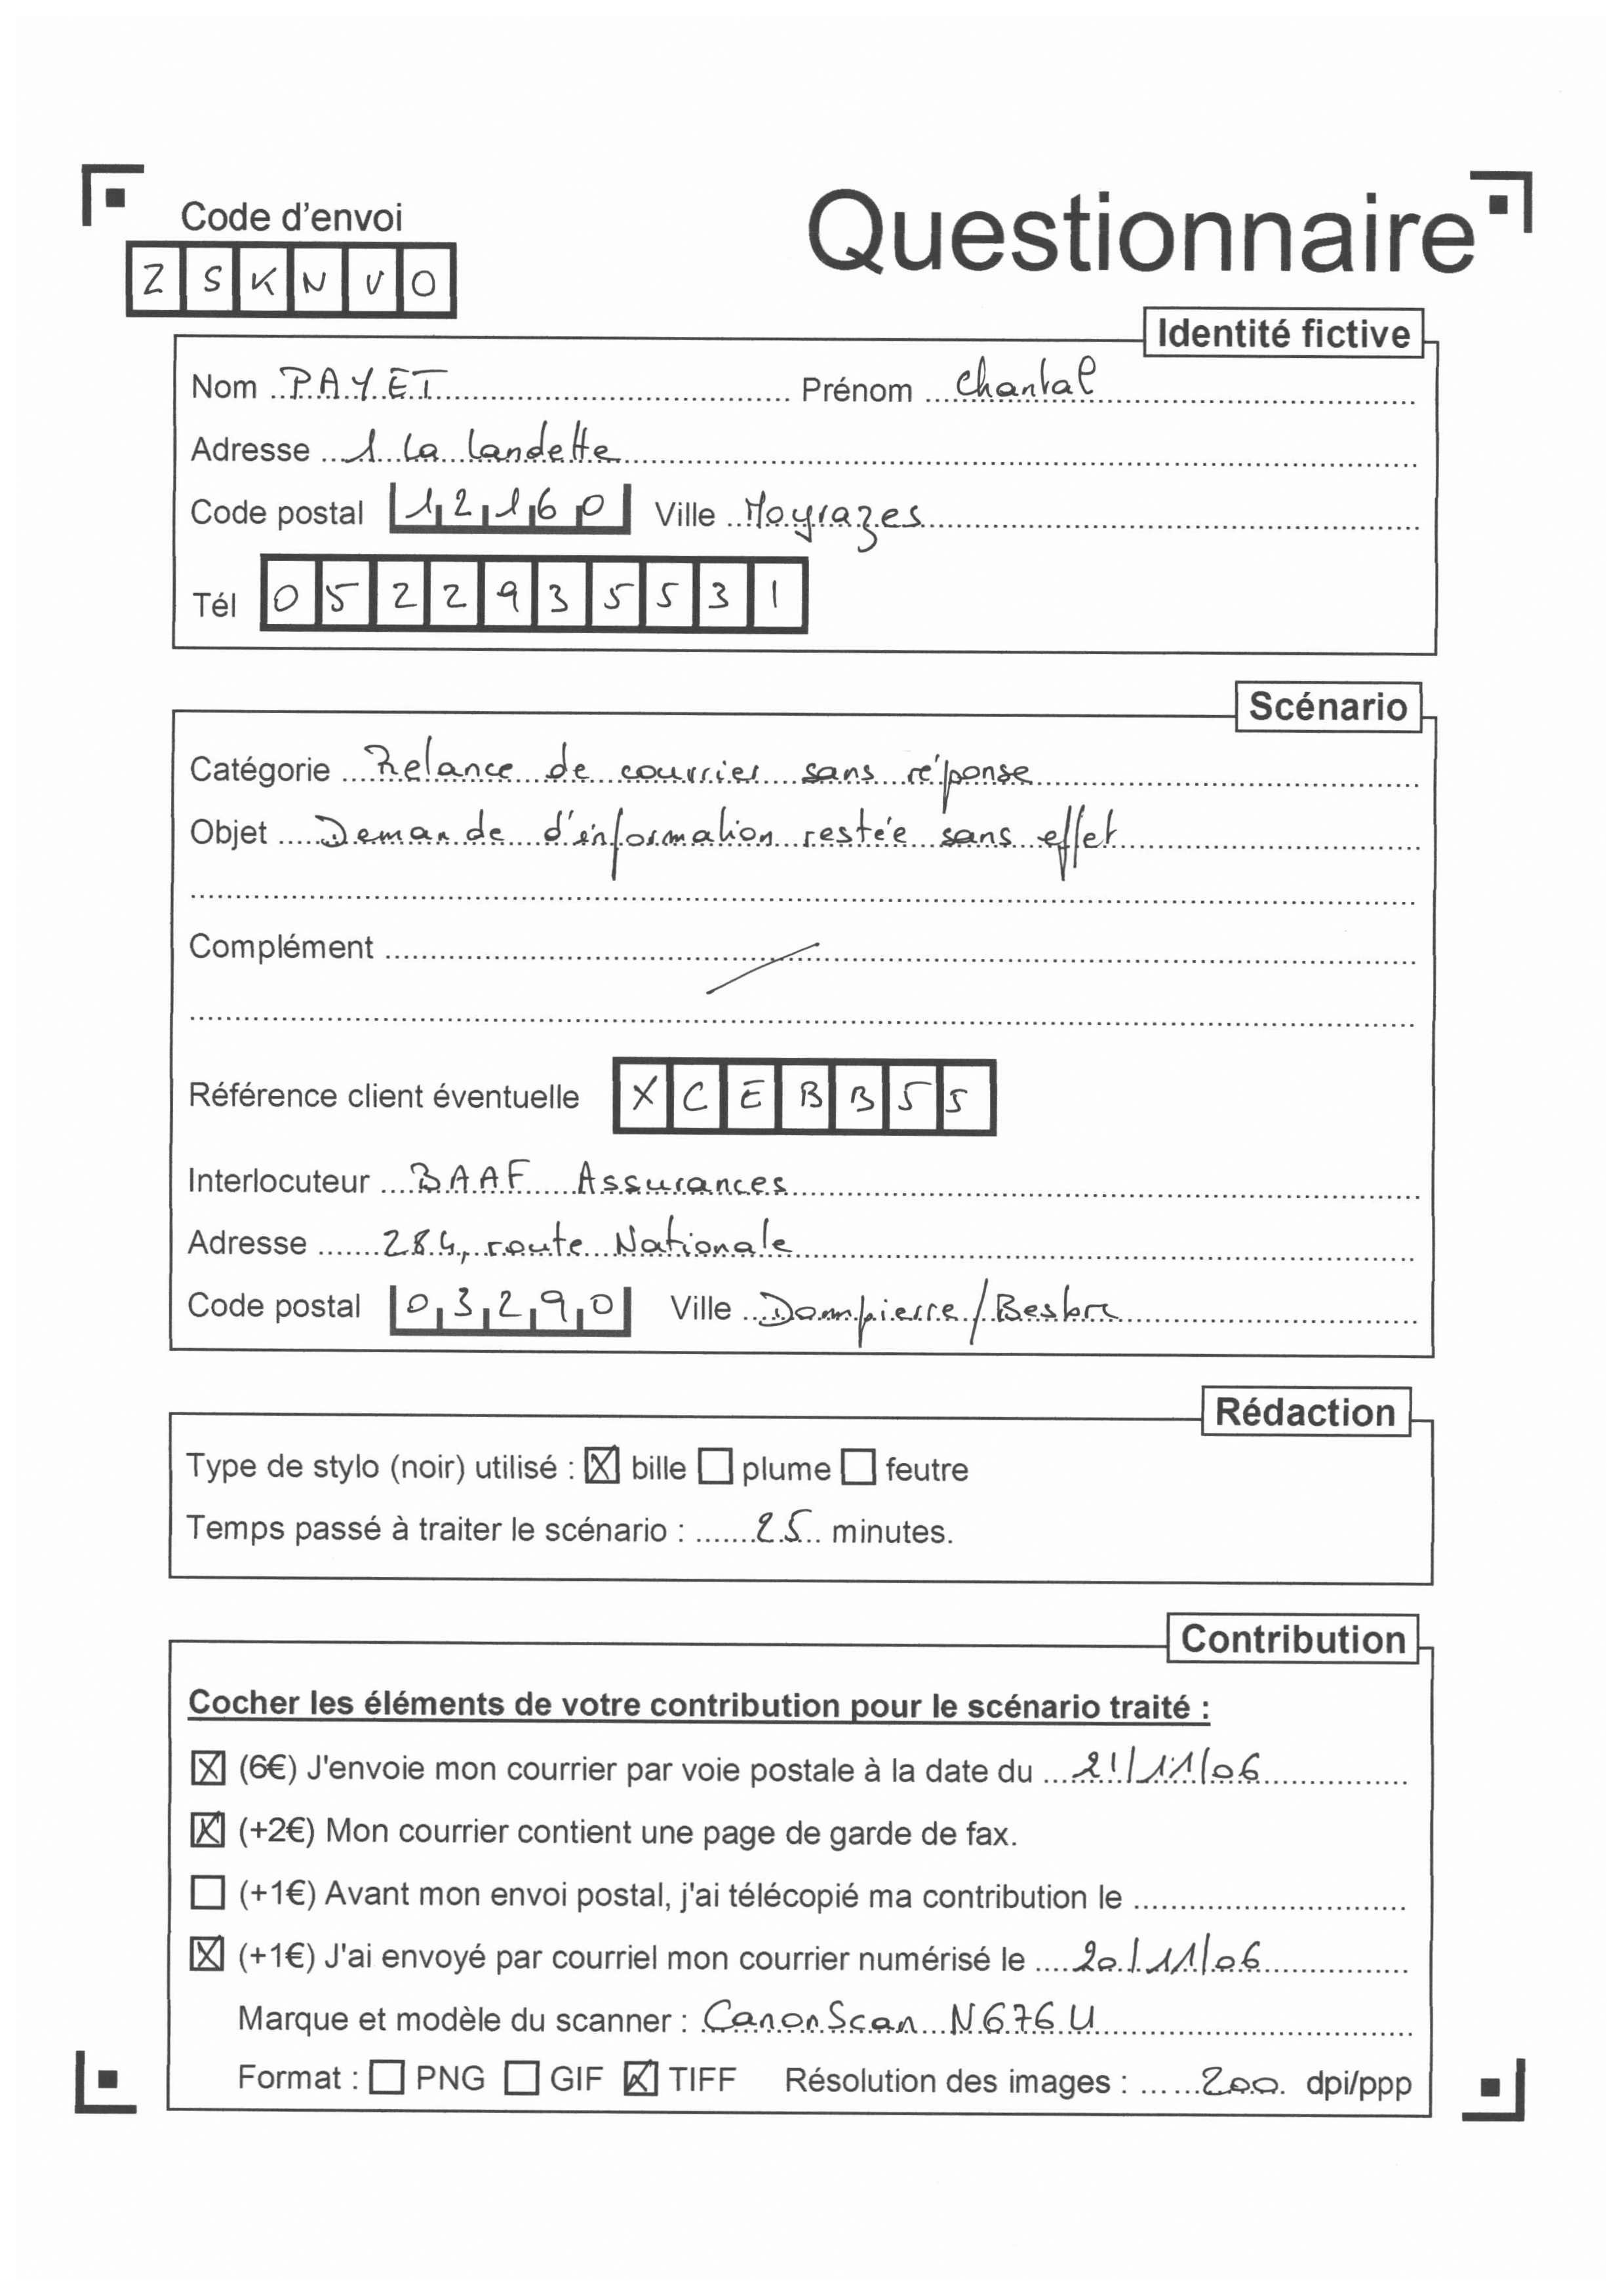 Code d'envoi
Questionnaire
Z S K N V O
Identité fictive
Nom PAYET Prénom Chantal
Adresse 1 La Landette
Code postal 12160 Ville Moyrazes
Tél 0522935531
Scénario
Catégorie Relance de courrier sans réponse
Objet Demande d'information restée sans effet
Complément
Référence client éventuelle XCEBB55
Interlocuteur BAAF Assurances
Adresse 284, route Nationale
Code postal 03290 Ville Dompierre/Besbre
Rédaction
Type de stylo (noir) utilisé : ☒ bille ☐ plume ☐ feutre
Temps passé à traiter le scénario : 25 minutes.
Contribution
Cocher les éléments de votre contribution pour le scénario traité :
☒ (6€) J'envoie mon courrier par voie postale à la date du 21/11/06
☒ (+2€) Mon courrier contient une page de garde de fax.
☐ (+1€) Avant mon envoi postal, j'ai télécopié ma contribution le
☒ (+1€) J'ai envoyé par courriel mon courrier numérisé le 20/11/06
Marque et modèle du scanner : CanonScan N676U
Format : ☐ PNG ☐ GIF ☒ TIFF Résolution des images : 200 dpi/ppp